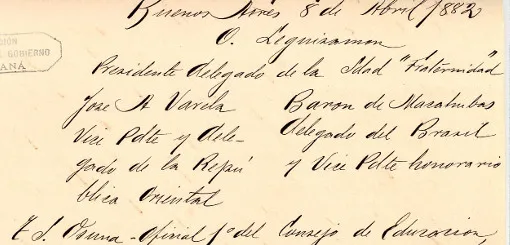 Buenos Aires 8 de Abril 1882
O. Leguizamon
Presidente delegado de la Sdad "Fraternidad"
Jose A Varela
Vice Pdte y dele-
gado de la Repú
blica Oriental
Baron de Macahubas
delegado del Brasil
y Vice Pdte honorario
T. S. Osuna - oficial 1º del Consejo de Educacion,
CION
GOBIERNO
ANÁ